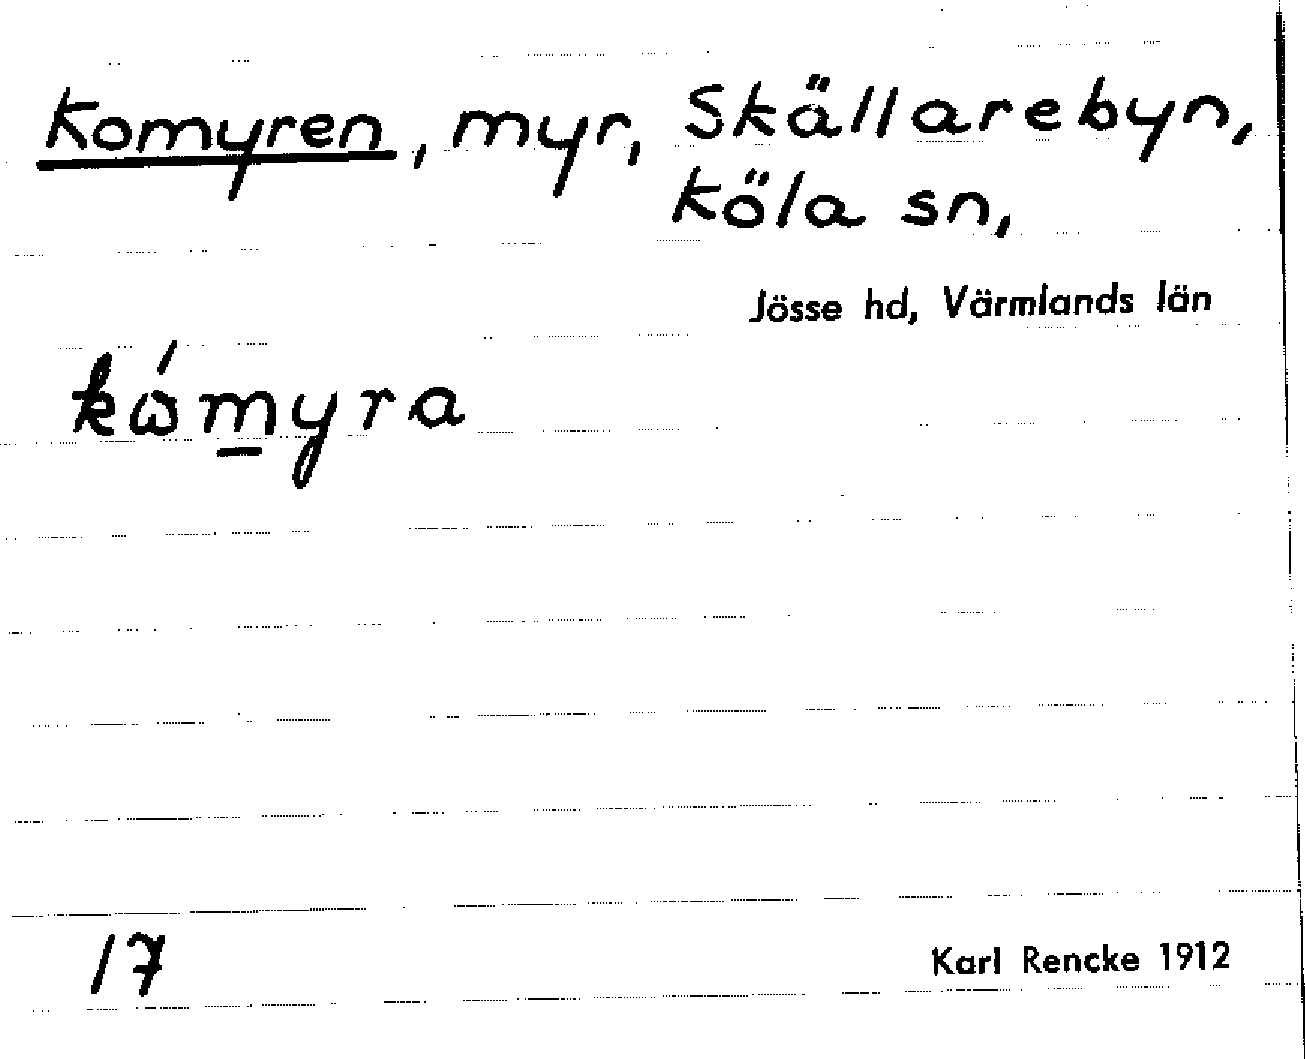 Komyren, myr, Skällarebyn,
Köla sn,
Jösse hd, Värmlands län
kǿmyra
17
Karl Rencke 1912